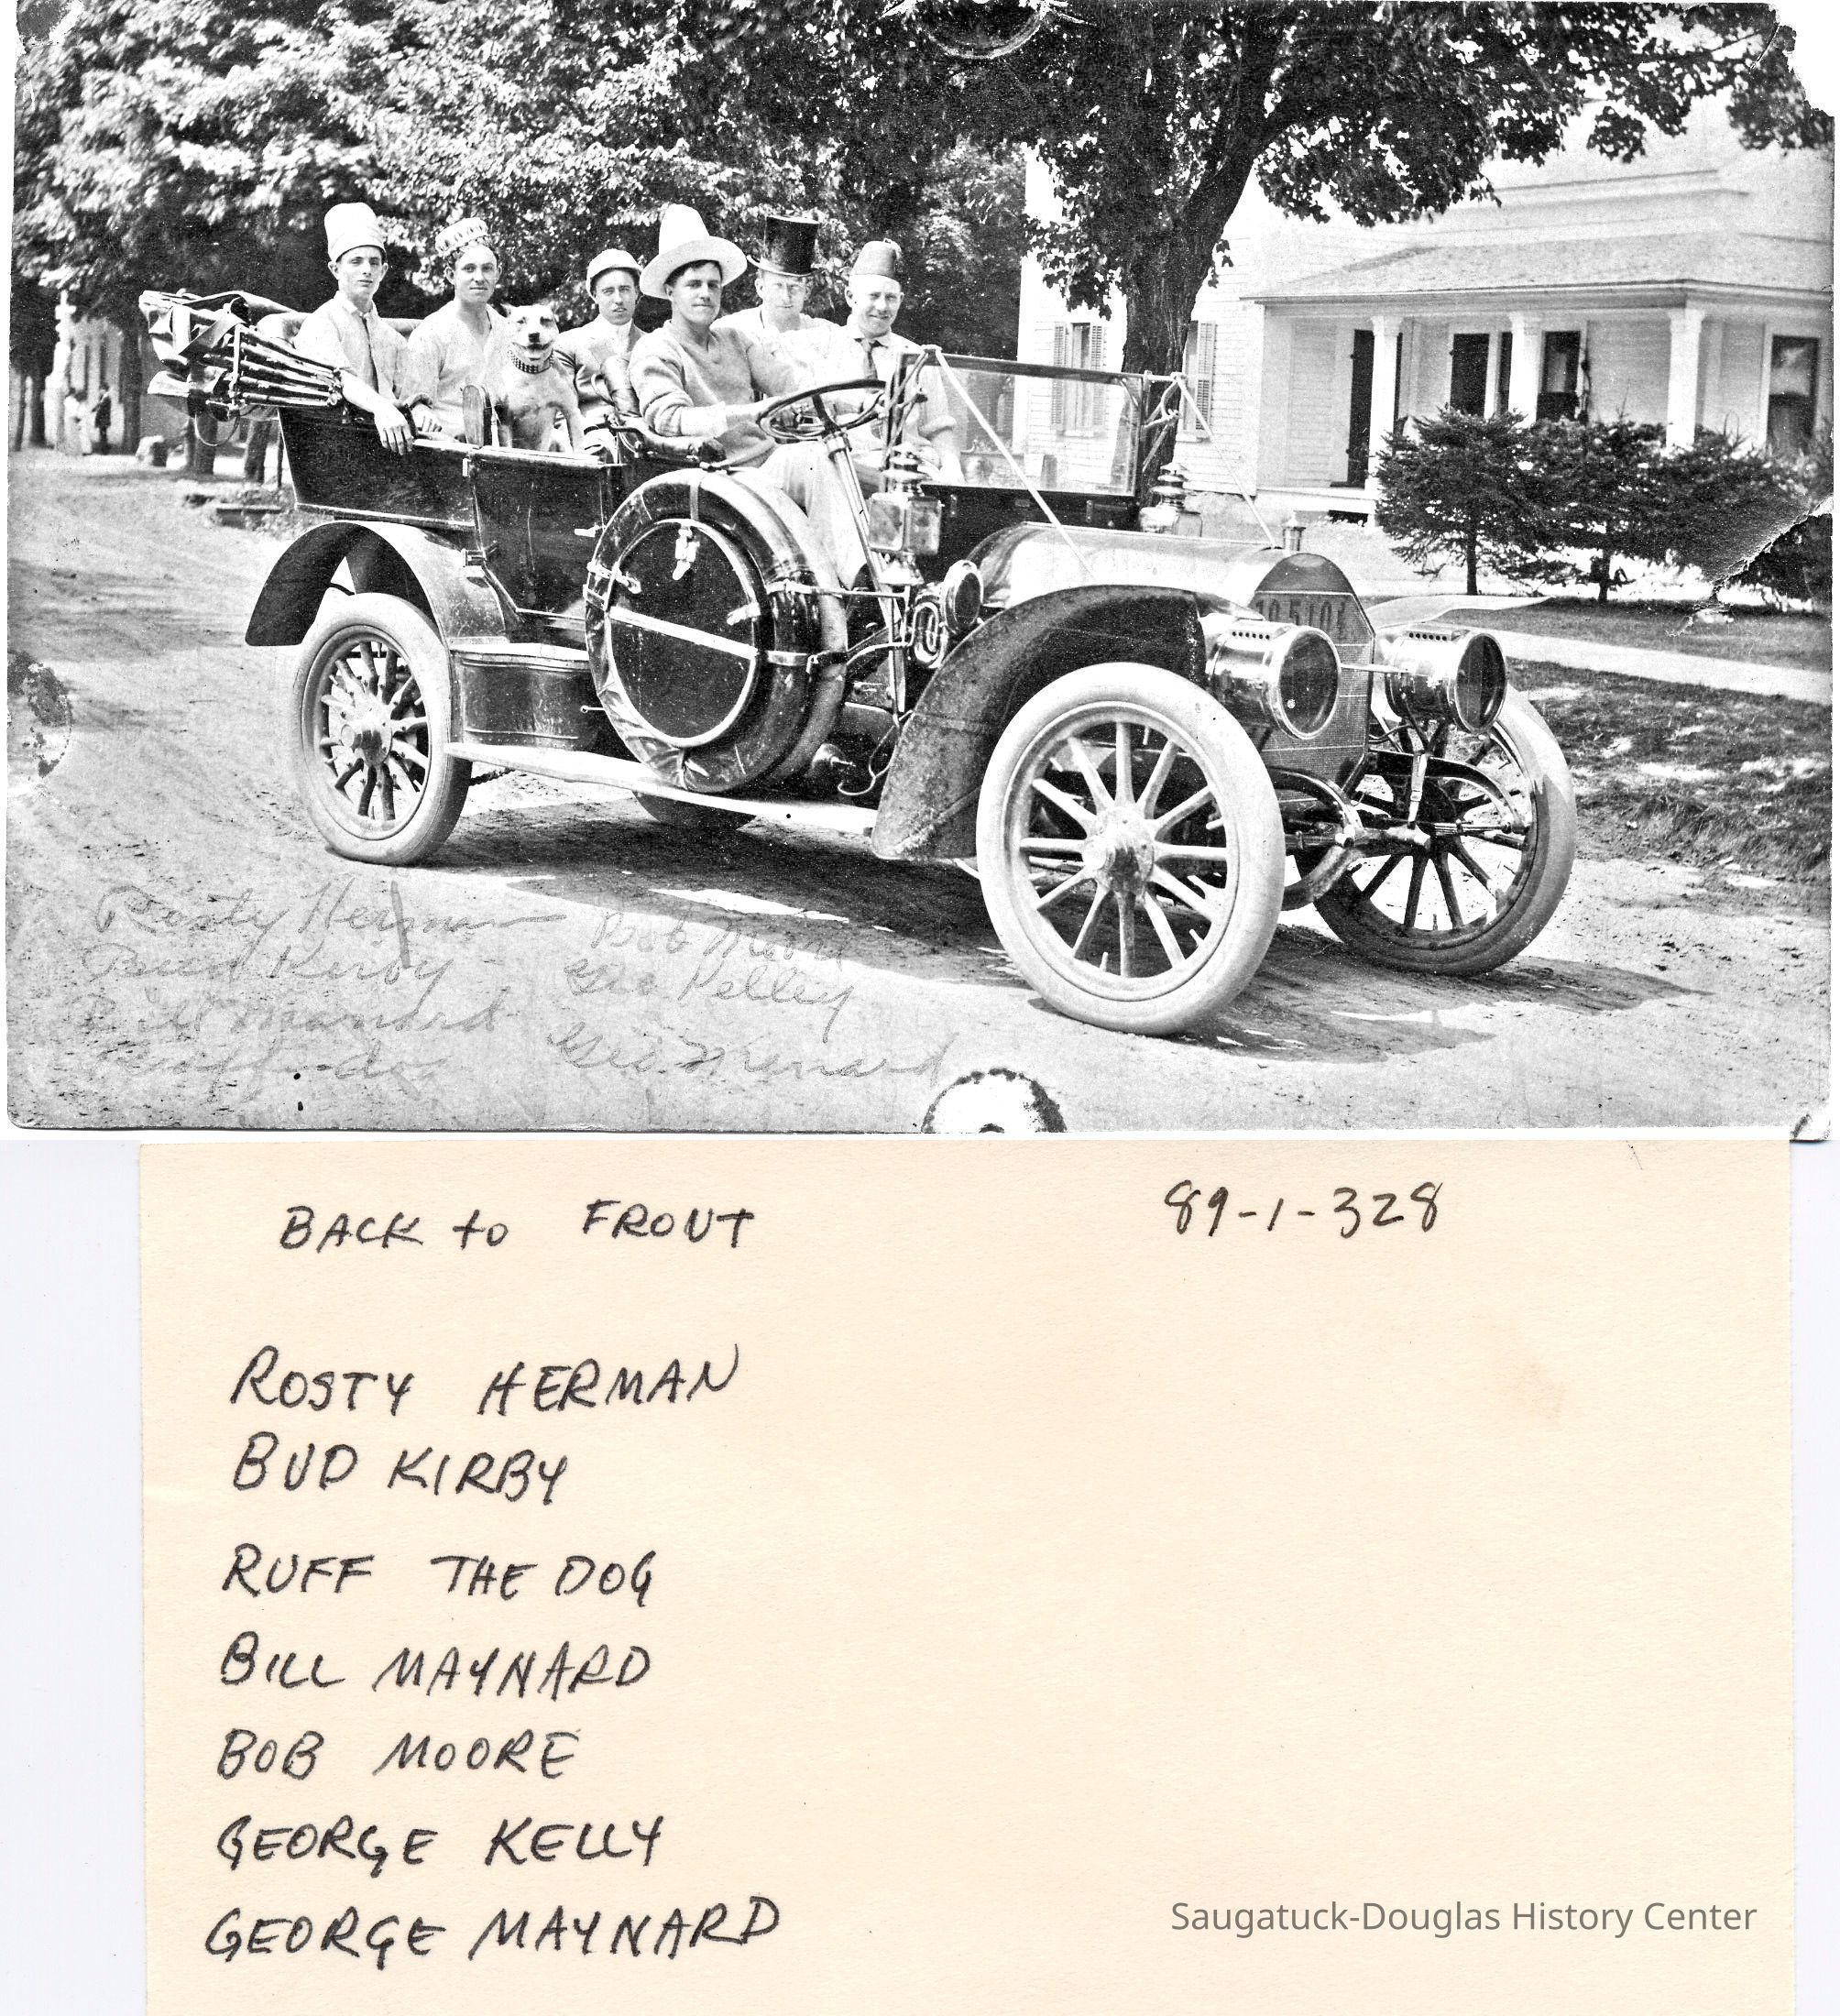 Rosty Herman
Bud Kirby
Bill Maynard
Bob Moore
Geo. Kelley
Geo. Menard
BACK to FRONT
89-1-328
ROSTY HERMAN
BUD KIRBY
RUFF THE DOG
BILL MAYNARD
BOB MOORE
GEORGE KELLY
GEORGE MAYNARD
Saugatuck-Douglas History Center